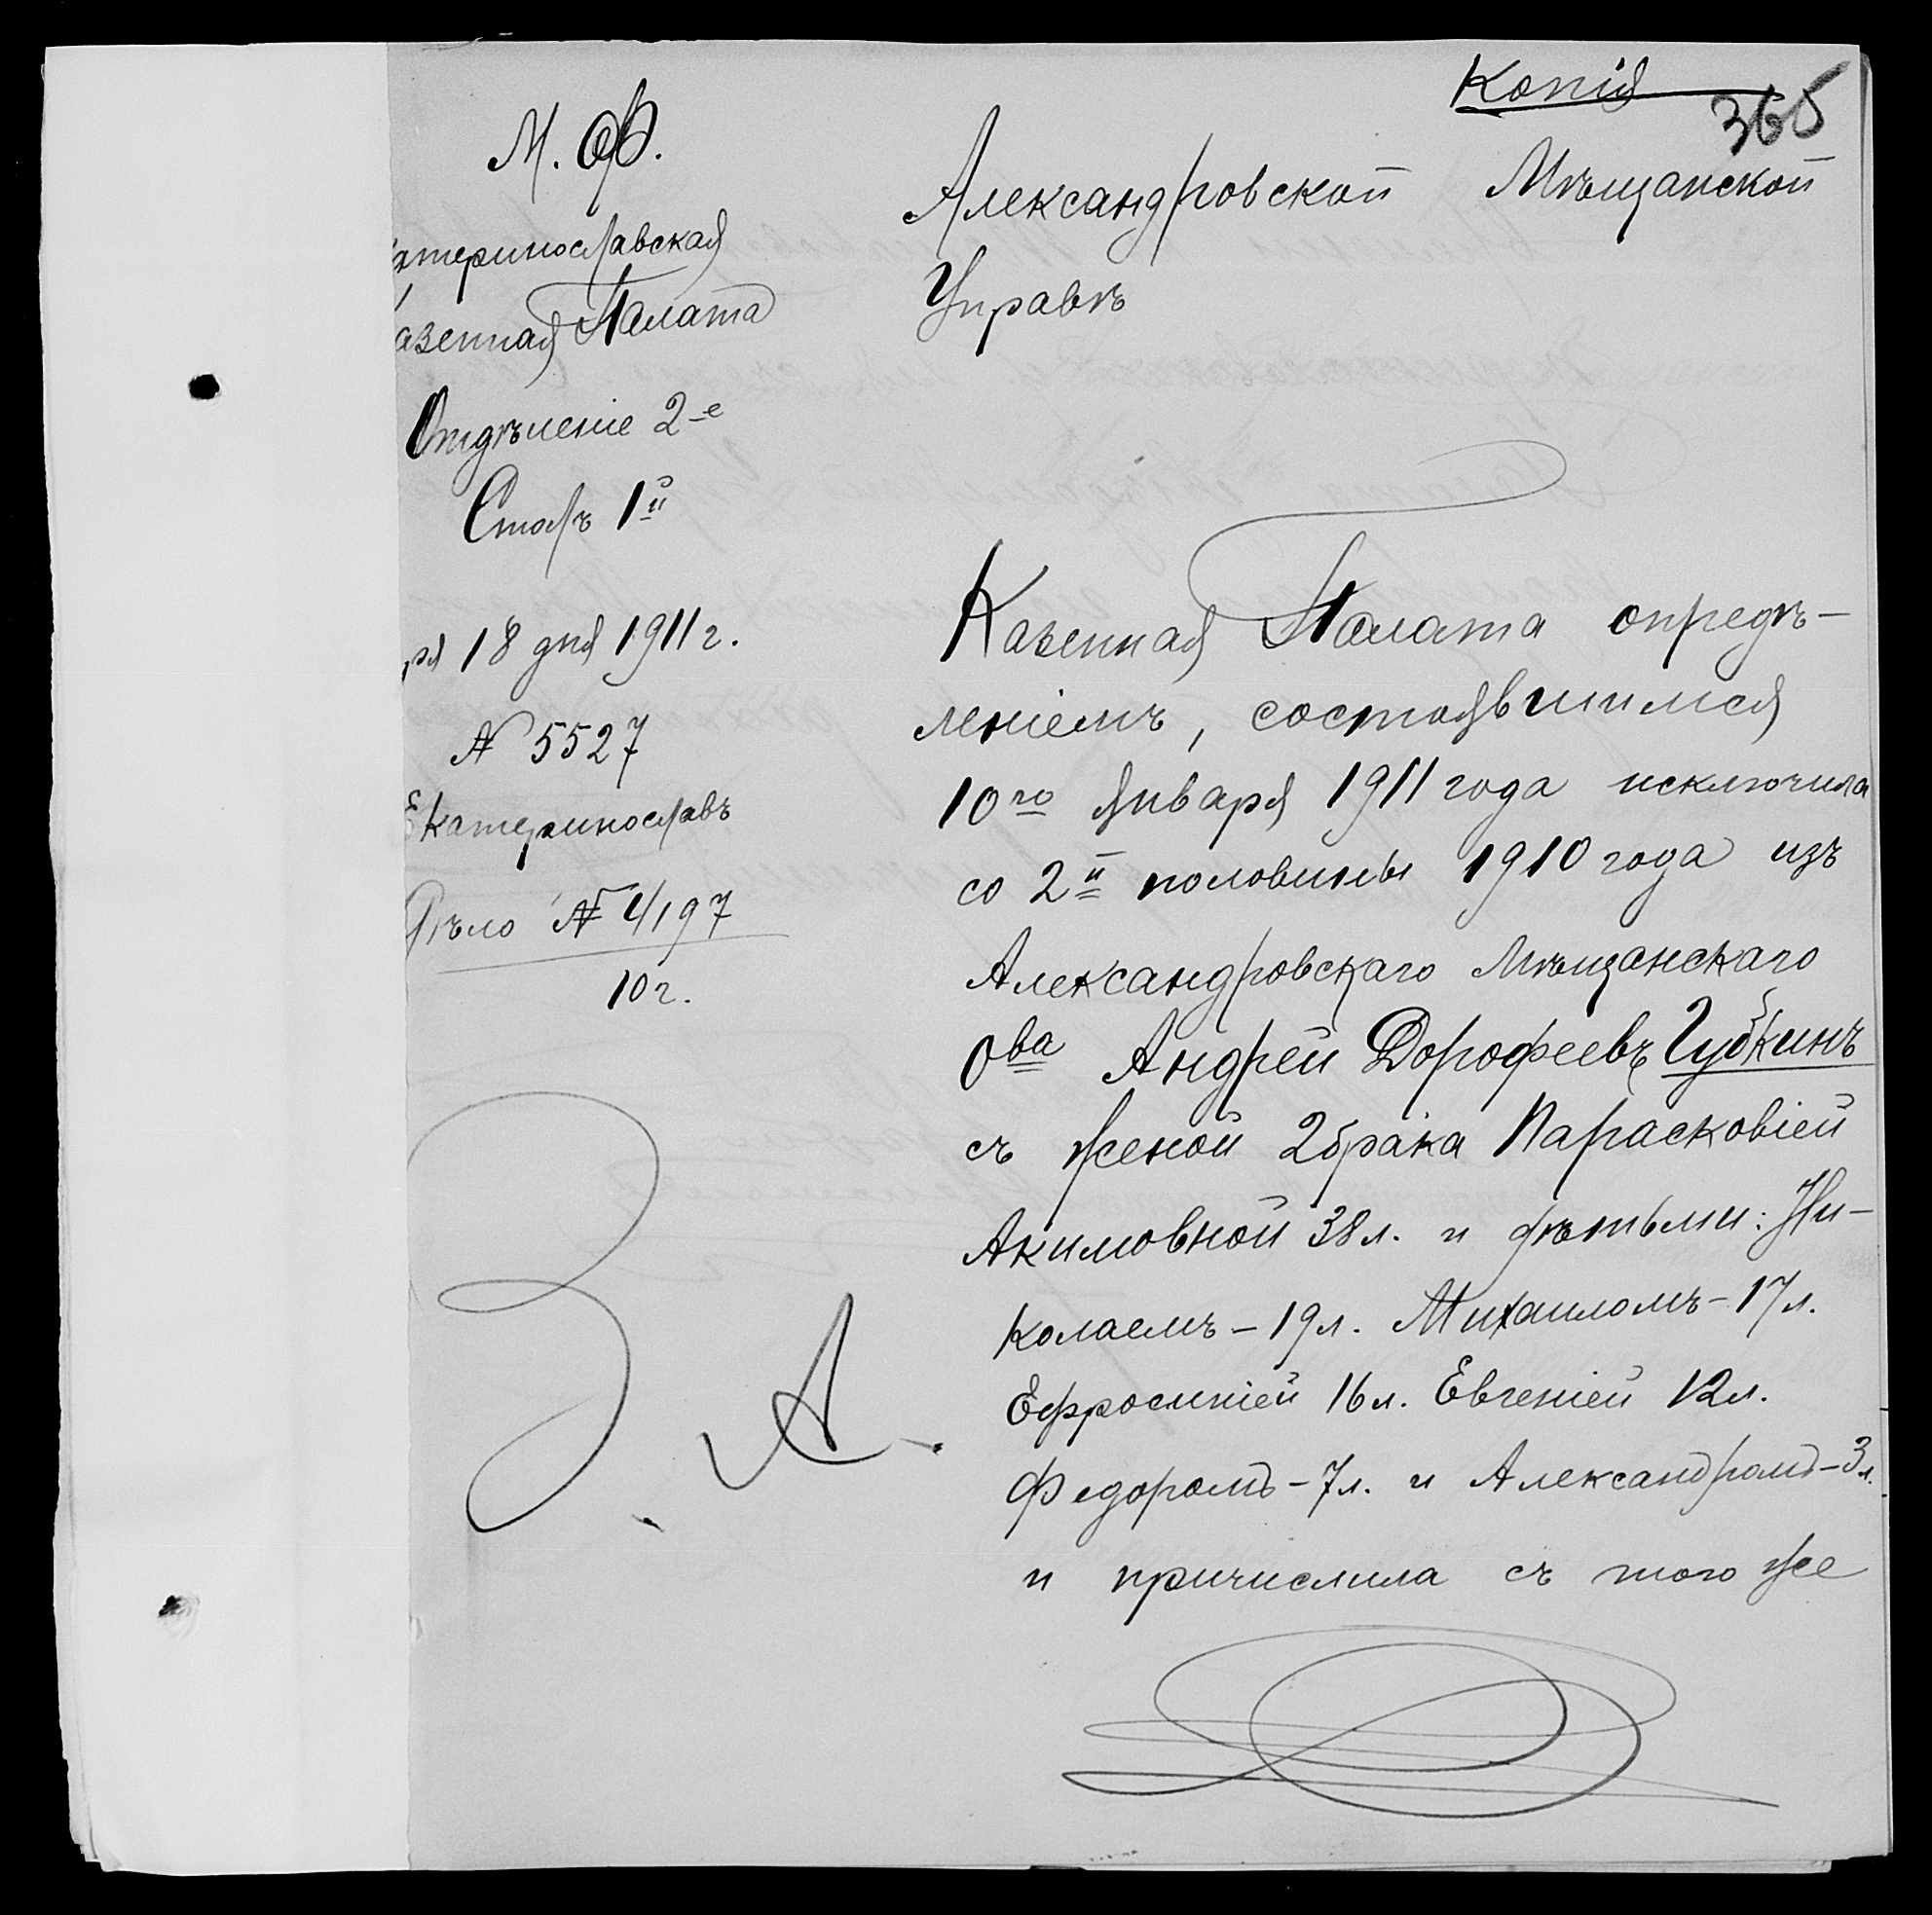 Копія
365
М. Ф.
катеринославская
азенная Палата
Отдѣленіе 2-е
Столъ 1й
ря 18 дня 1911 г.
№ 5527
Екатеринославъ
Дѣло № 4/197
10 г.
З. А.
Александровской Мѣщанской
Управѣ
Казенная Палата опредѣ-
леніемъ, состоявшимся
10го Января 1911 года исключила
со 2й половины 1910 года изъ
Александровскаго Мѣщанскаго
Ова Андрей Дорофеевъ Губкинъ
съ женой 2 брака Парасковіей
Акимовной 38 л. и дѣтьми: Ни-
колаемъ - 19 л. Михаиломъ - 17 л.
Ефросиніей 16 л. Евгеніей 12 л.
Федоромъ - 7 л. и Александромъ - 3 л.
и причислила съ того же